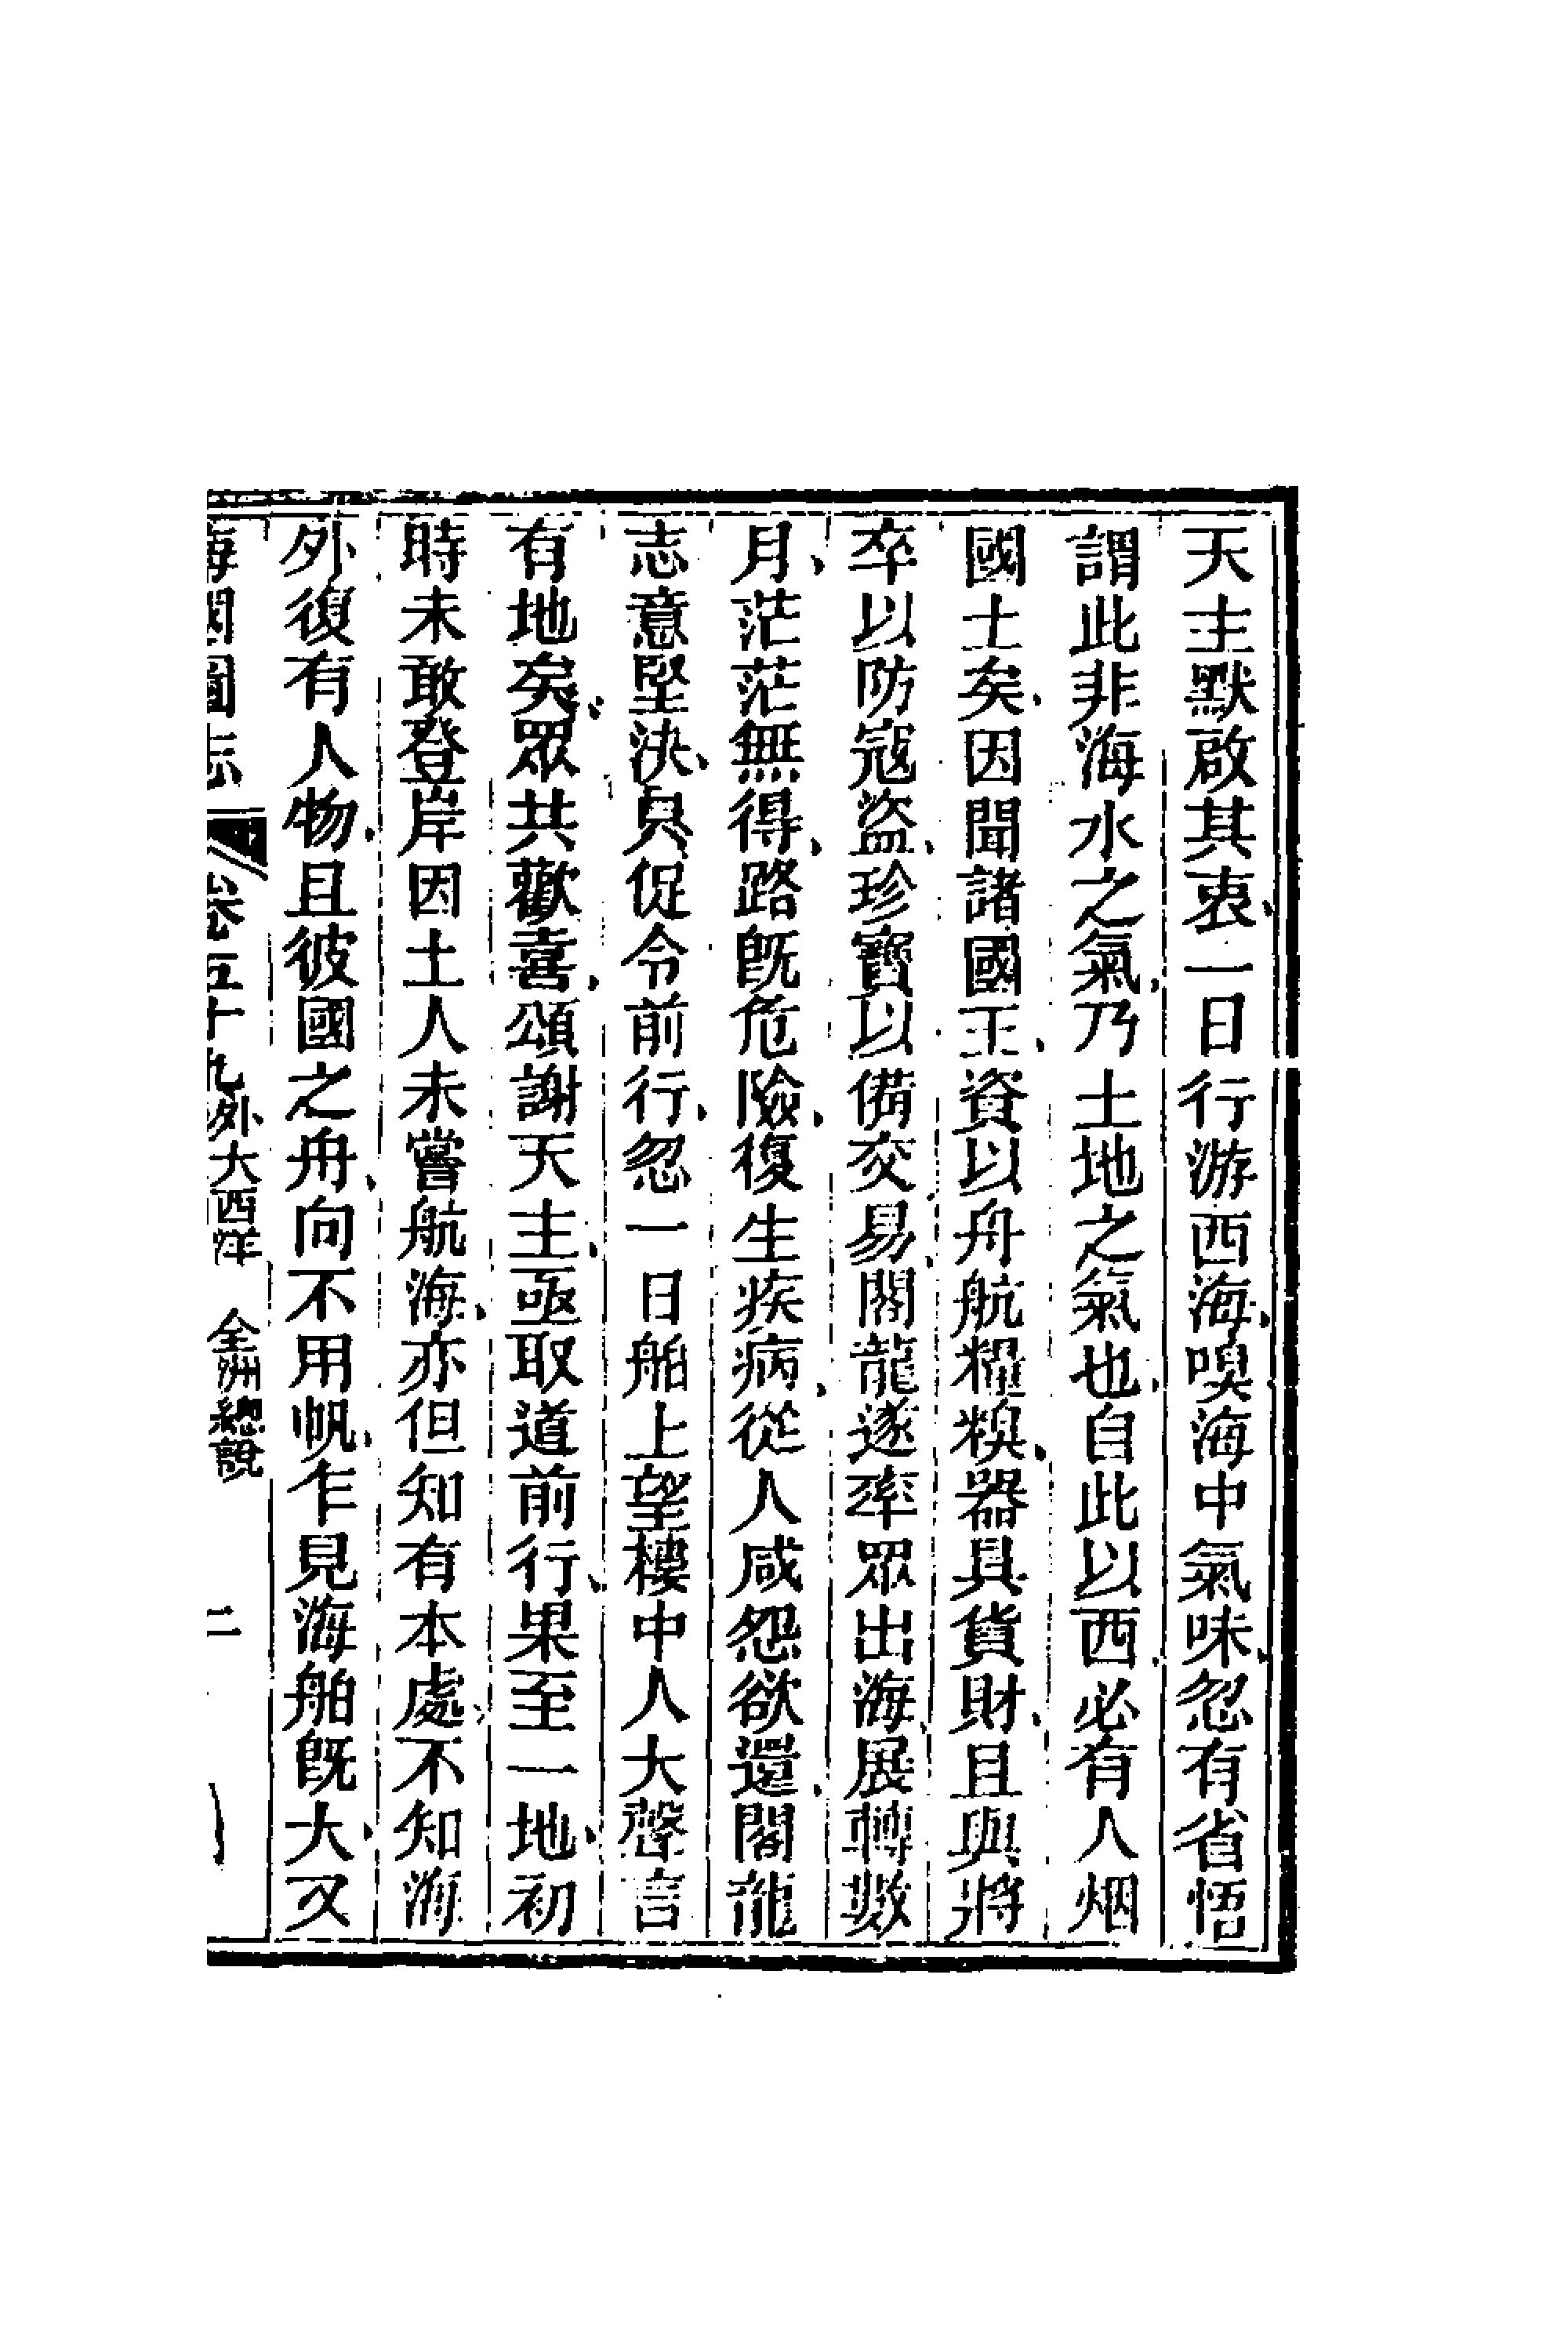 天主默啟其衷、一日行游西海、嗅海中氣味、忽有省悟
謂此非海水之氣、乃土地之氣也、自此以西、必有人烟
國土矣、因聞諸國王、資以舟航糧糗、器具貨財、且與將
卒以防寇盜、珍寶以備交易、閣龍遂率眾出海、展轉數
月、茫茫無得、路旣危險、復生疾病、從人咸怨欲還、閣龍
志意堅決、只促令前行、忽一日舶上望樓中人大聲言
有地矣、眾共歡喜、頌謝天主、亟取道前行、果至一地、初
時未敢登岸因土人未嘗航海、亦但知有本處、不知海
外復有人物、且彼國之舟、向不用帆、乍見海舶旣大、又
海國圖志 卷五十九 外大西洋 全洲總說 二